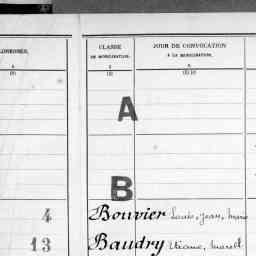 CLASSE
DE MOBILISATION.
JOUR DE CONVOCATION
À LA MOBILISATION.
A
B
4 Bouvier Louis, Jean, Marie
13 Baudry Étienne, Marcel